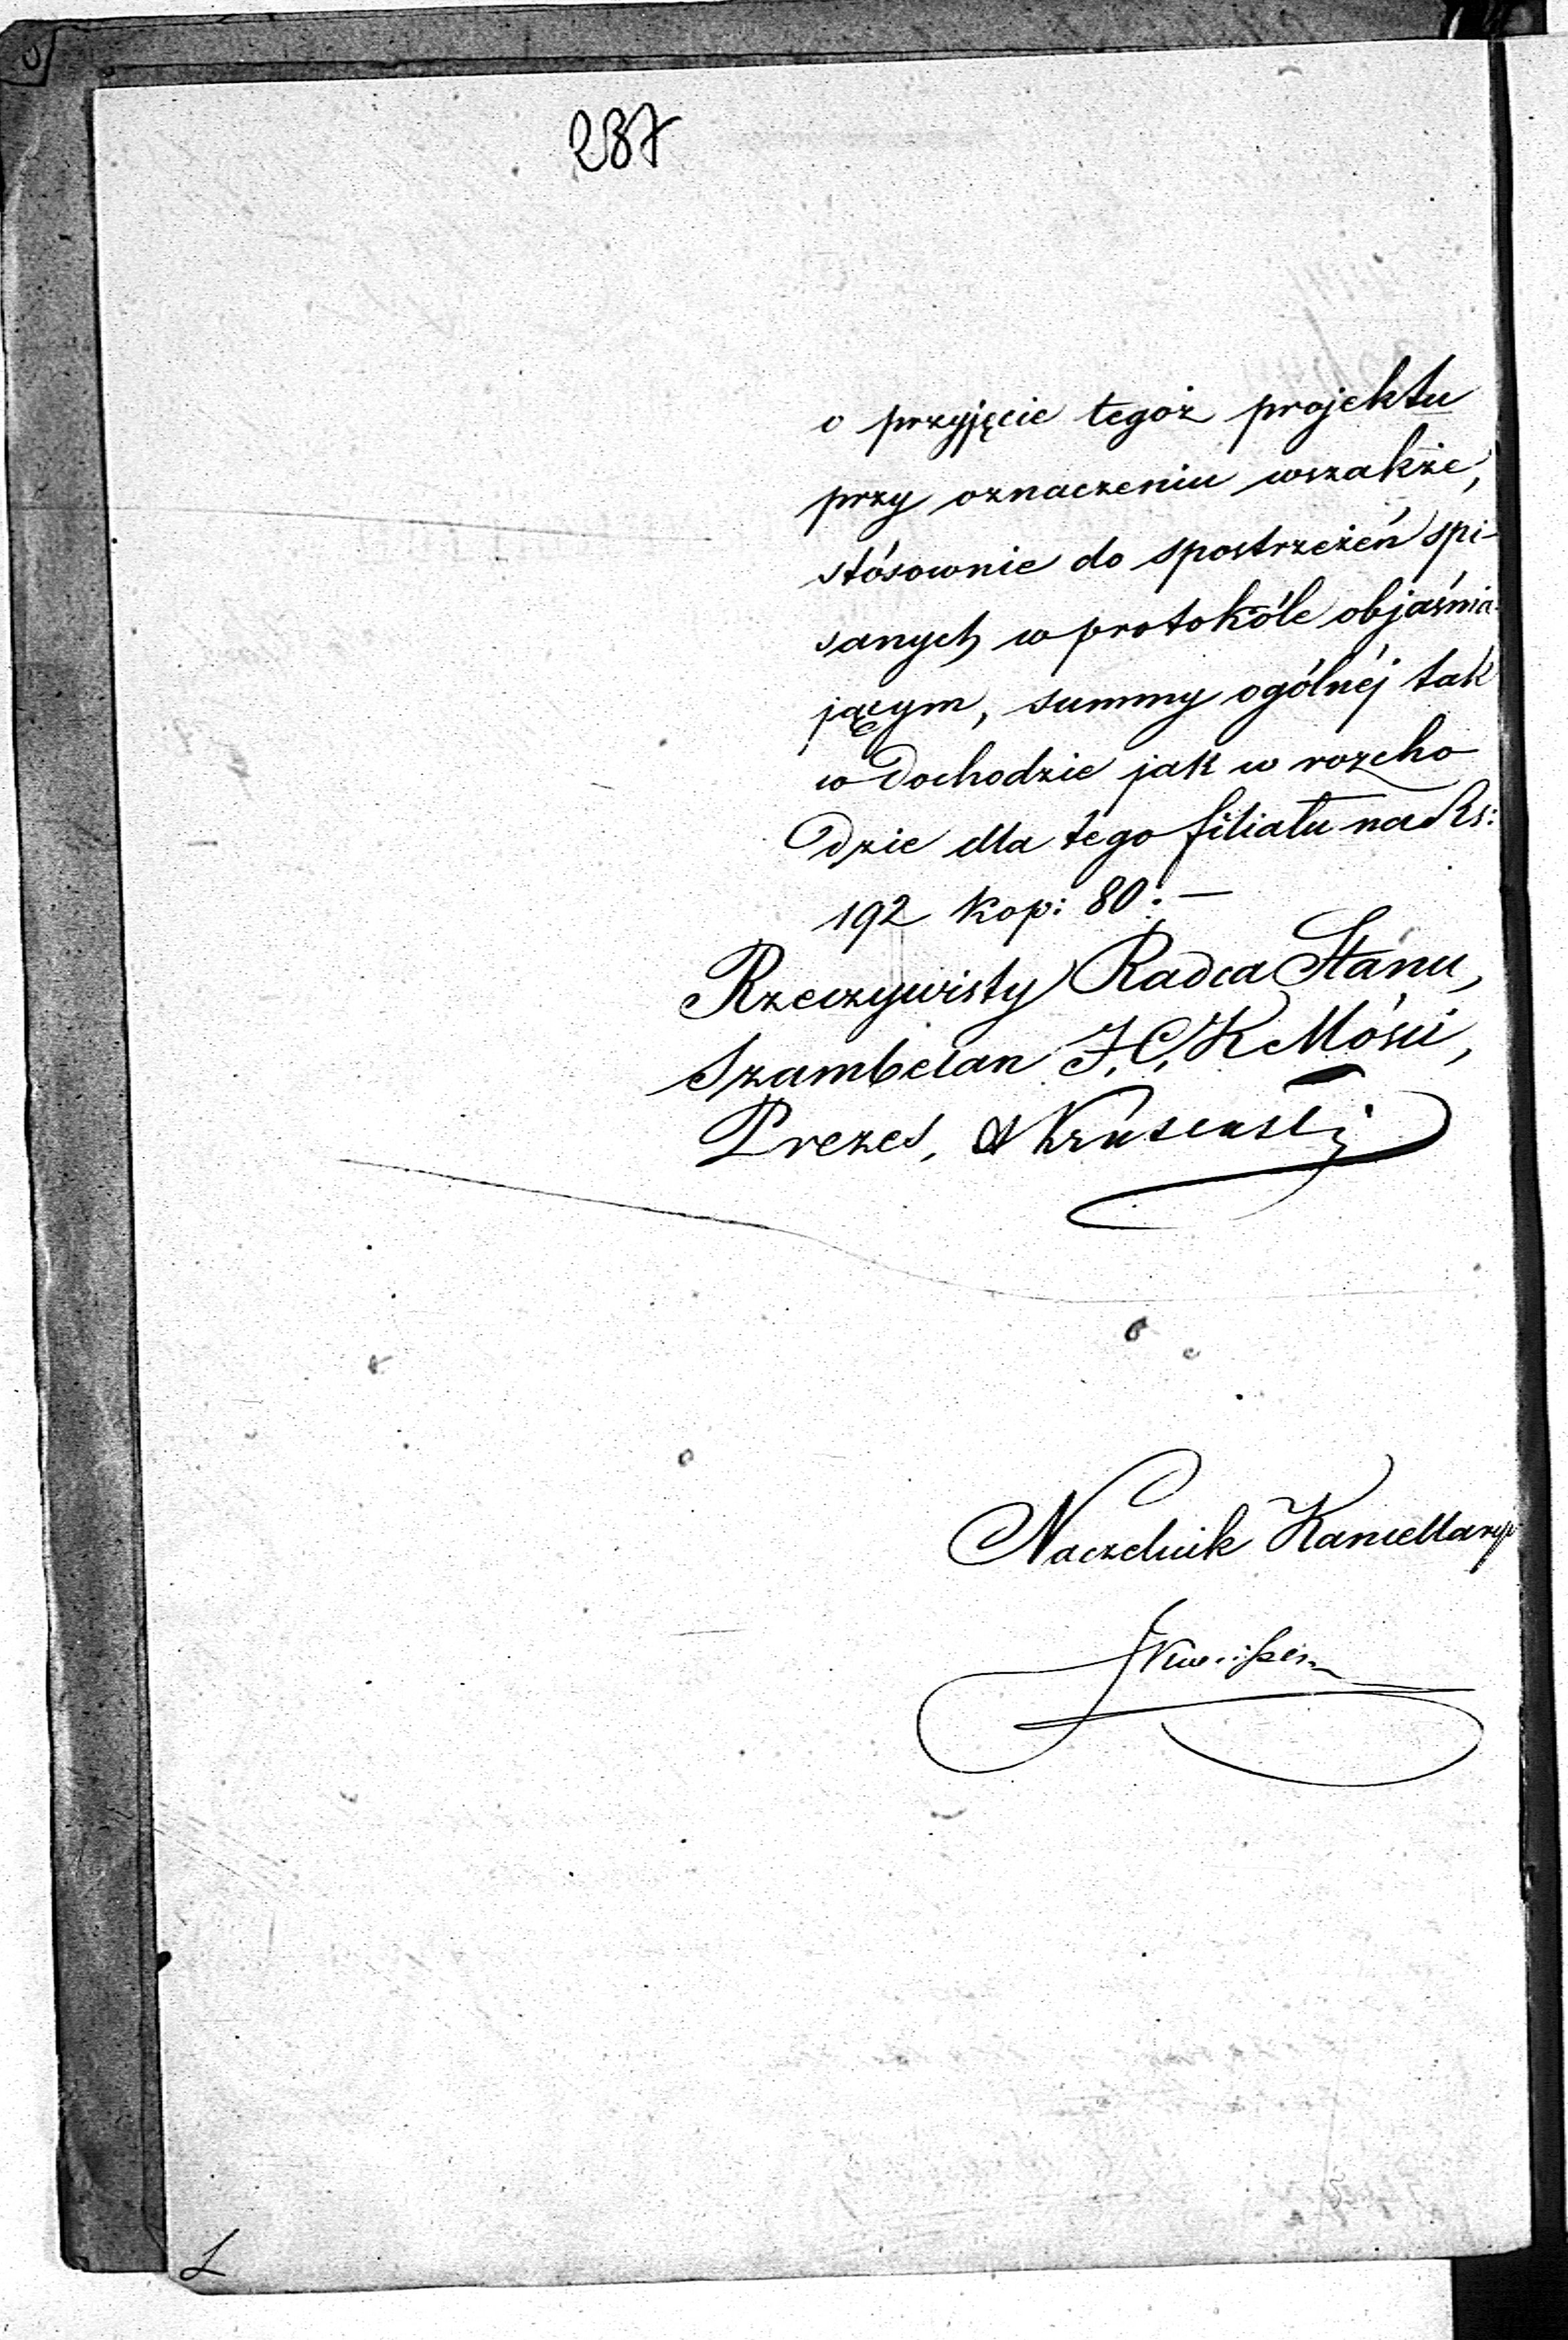 237
o przyjęcie tegoż projektu
przy oznaczeniu wszakże,
stósownie do spostrzeżeń spi-
sanych w protokóle objaśnia-
jącym, summy ogólnéj tak
w dochodzie jak w rozcho
dzie dla tego filiału na Rs:
192 kop: 80.—
Rzeczywisty Radca Stanu,
Szambelan J. C. K Mości,
Prezes,
Naczelnik Kancellaryi